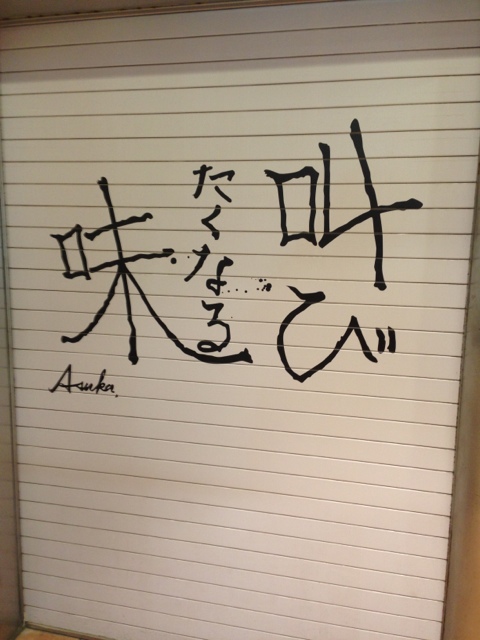 叫び
たくなる
味
Asuka.